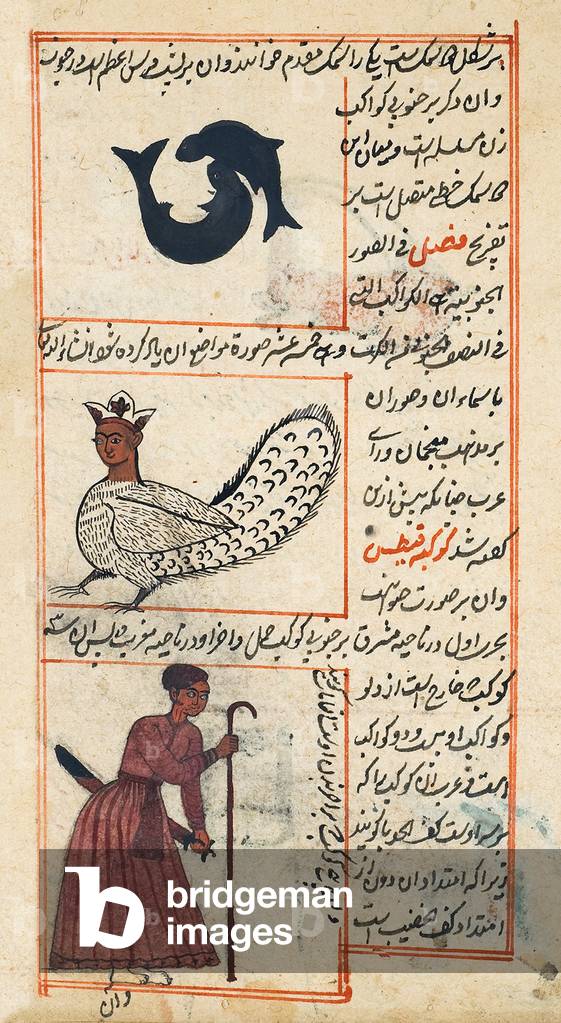 بر شکل دو سمک است یکی را سمک مقدم خوانند و ان بر پشت فرس اعظم است در جنوب
وان دیکر بر جنوبی کواکب
زن مسلسله است و میان این
دو سمک خطی متصل است بر
تفریج فصل فی الصور
الجنوبیة الکواکب التی
فی النصف الجنوبی من الکرة خمسة عشر صورة مواضع ان یاد کرده شود انشاء الله
باسماء ان و صور ان
بر مذهب منجمان و رای
عرب چنانکه پیش ازین
کفته شد کوکبة قیطس
وان بر صورت حیوان
بحری اول در ناحیه مشرق بر جنوبی کوکب حمل و اخر او در ناحیه مغرب پس ان سه
کوکب خارج است از دلو
و کواکب او بیست و دو کواکب
است و عرب ان کوکب را که
بر سر اوست کف الجذما کویند
زیرا که امتداد ان دون از
امتداد کف خضیب است
وان
b
bridgeman
images